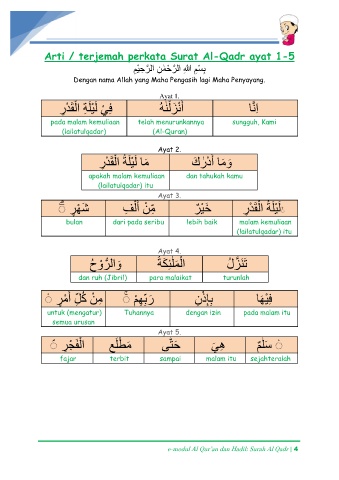 Arti / terjemah perkata Surat Al-Qadr ayat 1-5
بِسْمِ اللهِ الرَّحْمٰنِ الرَّحِيْمِ
Dengan nama Allah yang Maha Pengasih lagi Maha Penyayang.
Ayat 1.
اِنَّا اَنْزَلْنٰهُ فِيْ لَيْلَةِ الْقَدْرِ
sungguh, Kami telah menurunkannya pada malam kemuliaan
(Al-Quran) (lailatulqadar)
Ayat 2.
وَمَا اَدْرٰىكَ مَا لَيْلَةُ الْقَدْرِ
dan tahukah kamu apakah malam kemuliaan
(lailatulqadar) itu
Ayat 3.
لَيْلَةُ الْقَدْرِ خَيْرٌ مِّنْ اَلْفِ شَهْرٍ
malam kemuliaan lebih baik dari pada seribu bulan
(lailatulqadar) itu
Ayat 4.
تَنَزَّلُ الْمَلٰۤىِٕكَةُ وَالرُّوْحُ
turunlah para malaikat dan ruh (Jibril)
فِيْهَا بِاِذْنِ رَبِّهِمْ مِنْ كُلِّ اَمْرٍ
pada malam itu dengan izin Tuhannya untuk (mengatur)
semua urusan
Ayat 5.
سَلٰمٌ هِيَ حَتّٰى مَطْلَعِ الْفَجْرِ
sejahteralah malam itu sampai terbit fajar
e-modul Al Qur'an dan Hadits Surah Al Qadr | 4